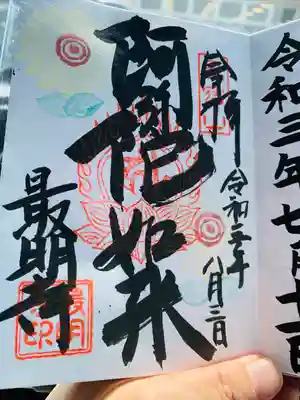 令和三年七月十一日
奉拝
令和三年八月三日
阿彌陀如来
最明寺
最明
寺印